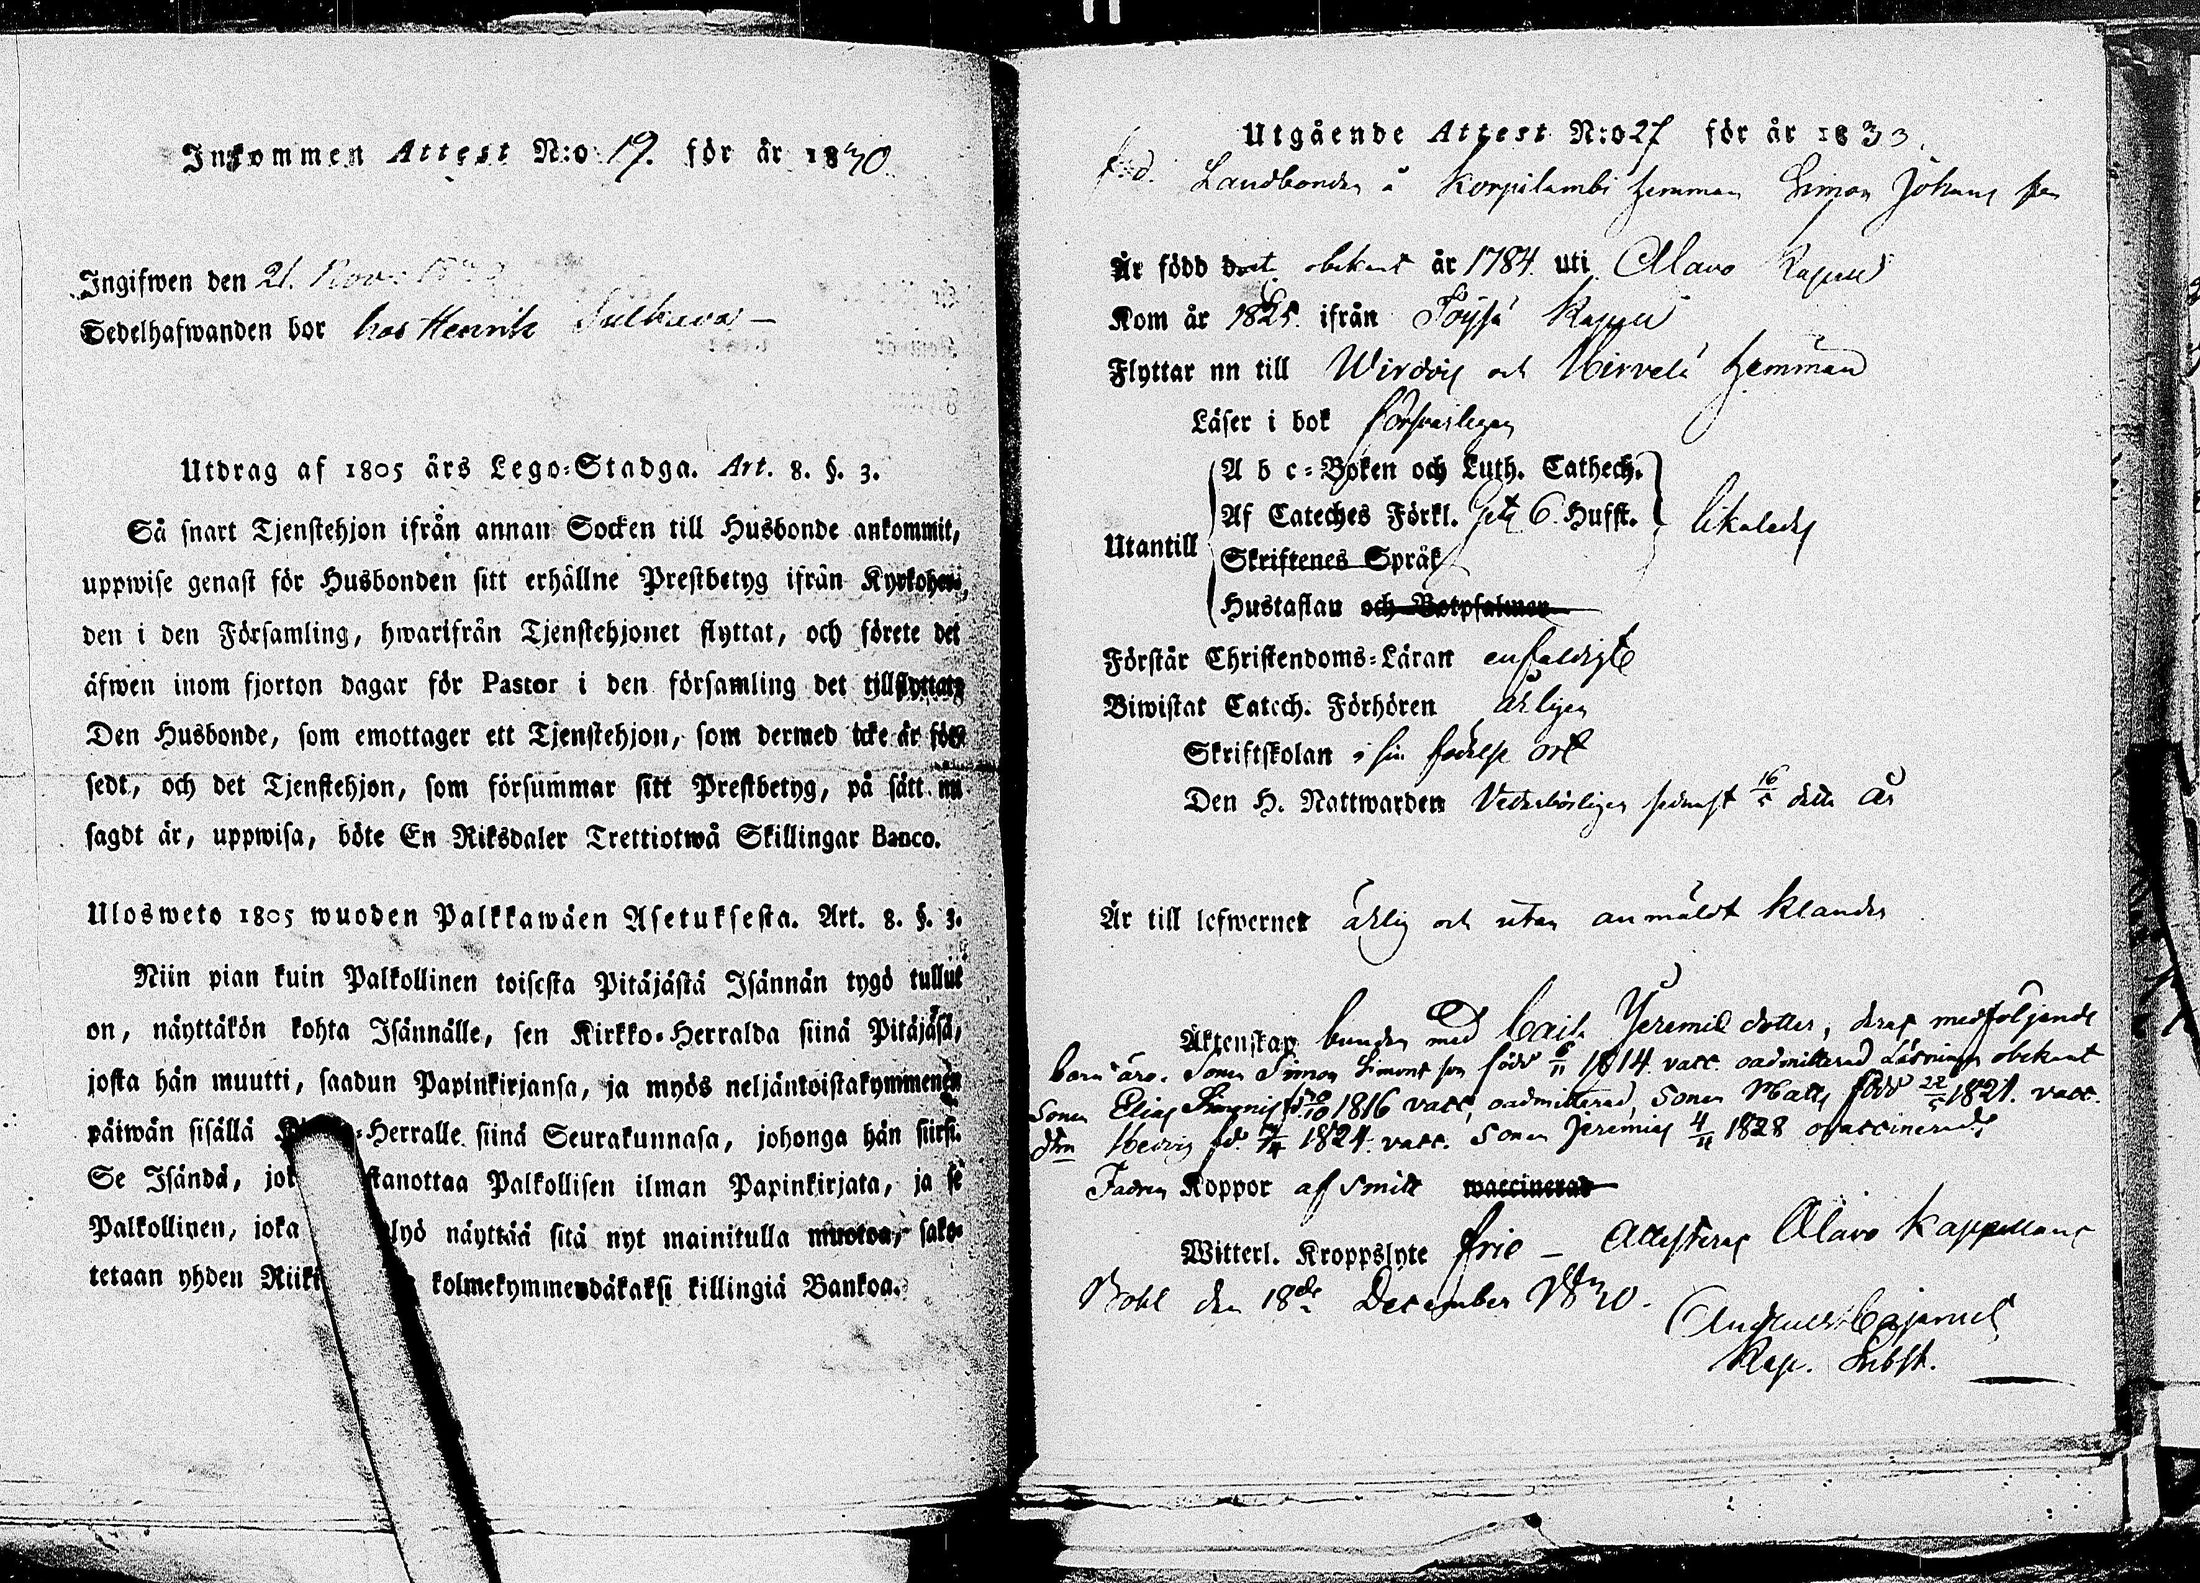 Inkommen Attest N:o 19. för år 1830.
Ingifwen den 21. Nov.
Sedelhafwanden bor hos Henrik Sulkava
Utdrag af 1805 års Lego-Stadga. Art. 8. §. 3.
Så snart Tjenstehjon ifrån annan Socken till Husbonde ankommit,
uppwise genast för Husbonden sitt erhållne Prestbetyg ifrån Kyrkoher-
den i den Församling, hwarifrån Tjenstehjonet flyttat, och förete det
äfwen inom fjorton dagar för Pastor i den församling det tillflyttat;
Den Husbonde, som emottager ett Tjenstehjon, som dermed icke är för-
sedt, och det Tjenstehjon, som försummar sitt Prestbetyg, på sätt nu
sagdt är, uppwisa, böte En Riksdaler Trettiotwå Skillingar Banco.
Ulosweto 1805 wuoden Palkkawäen Asetuksesta. Art. 8. §. 3.
Niin pian kuin Palkollinen toisesta Pitäjästä Isännän tygö tullut
on, näyttäkön kohta Isännälle, sen Kirkko-Herralda siinä Pitäjäsä,
josta hän muutti, saadun Papinkirjansa, ja myös neljäntoistakymmenen
päiwän sisällä -Herralle siinä Seurakunnasa, johonga hän siirsi.
Se Isändä, stanottaa Palkollisen ilman Papinkirjata, ja se
Palkollinen, joka lyö näyttää sitä nyt mainitulla muotoa, sako-
tetaan yhden kolmekymmendäkaksi killingiä Bankoa.
Utgående Attest N:o 27 för år 1830.
Landbonden å Korpilambi hemman Simon Johans son
Är född obekant år 1784 uti Alavo Kapell
Kom år 1825. ifrån Töysä Kapell
Flyttar nu till Wirdois och Hirvelä hemman
Läser i bok försvarligen
A b c-Boken och Luth. Cathech.
Af Cateches Förkl. 6. Hufst. likaledes
Utantill
Skriftenes Språk
Hustaflan och Botpsalmer
Förstår Christendoms-Läran enfaldigt
Biwistat Catech. Förhören årligen
Skriftskolan i sin födelse ort
Den H. Nattwarden Vederbörligen sednast 16/5 detta år
Är till lefwernet ärlig och utan anmäldt klander
Äktenskap bunden med Caisa Jeremiæ dotter, deras medföljande
barn äro. Sonen Simon Simons son född 6/11 1814. vacc. oadmitterad Läsningen obekant
Sonen Elias född 1816 vacc. oadmitterad, Sonen Matts född 22/5 1821. vacc.
Hedvig fd. 1824. vacc. Sonen Jeremias 4/11 1828 ovaccinerad.
Fadren Koppor af smitt waccinerad
Witterl. Kroppslyte frie – Attesteras Alavo Kappellans
Bohl den 18de December 1830.
Cajanus
Kap. Subst.